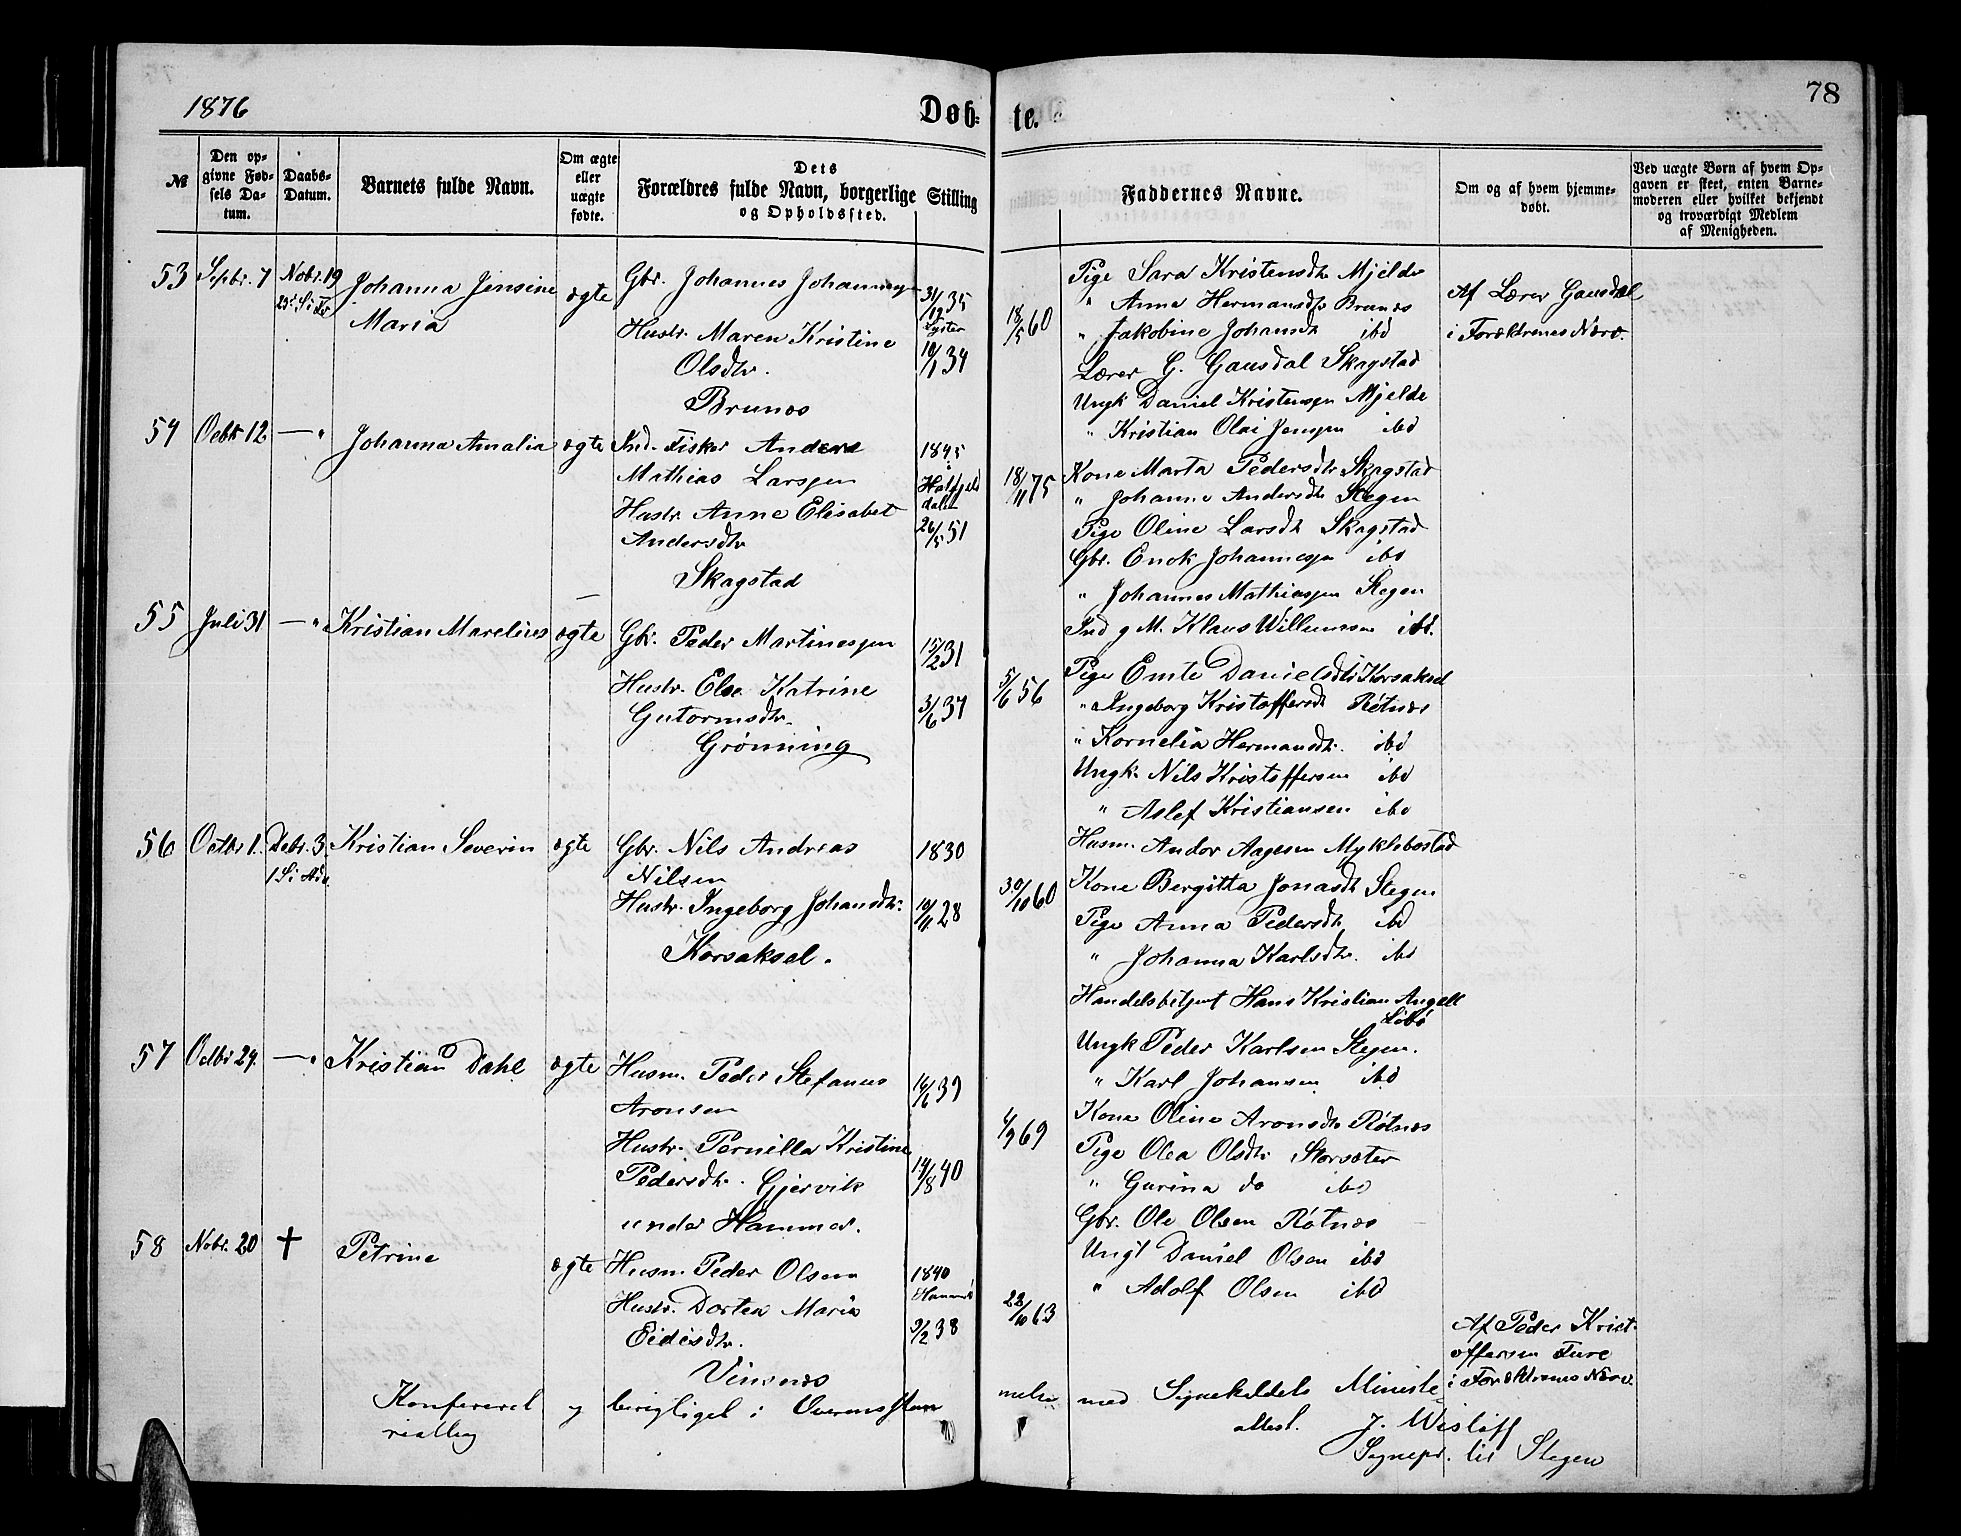 1876
Døb-
te.
78
№
Den op-
givne Fød-
sels Da-
tum.
Daabs-
Datum.
Barnets fulde Navn.
Om ægte
eller
uægte
fødte.
Dets
Forældres fulde Navn, borgerlige Stilling
og Opholdssted.
Faddernes Navne.
Om og af hvem hjemme-
døbt.
Ved uægte Børn af hvem Op-
gaven er skeet, enten Barne-
moderen eller hvilket bekjendt
og troværdigt Medlem
af Menigheden.
53 Sepbr. 7 Nobr. 19
Johanna Jensine
Maria
ægte
Gbr. Johannes Johannesen
31/12 35
Hustr. Maren Kristine
Olsdtr.
10/1 34
Brunæs
18/5 60
Pige Sara Kristensdtr Mjelde
" Anna Hermansdtr Brunæs
" Jakobine Johansdtr ibd
Lærer G. Gausdal Skagstad
Ungk Daniel Kristensen Mjelde
" Kristian Olai Jensen ibd
Af Lærer Gausdal
i Forældrenes Nærv.
54 Octbr 12 — "
Johanna Amalia
ægte
Ind. Fisker Anders
Mathias Larssen
1845
Hatfjeld
dalen
Hustr. Anne Elisabet
Andersdtr
26/5 51
Skagstad
18/11 75
Kone Marta Pedersdtr Skagstad
" Johanne Andersdtr Stegen
Pige Oline Larsdtr Skagstad
Gbr. Enok Johannessen ibd
" Johannes Mathiassen Stegen
Ind g M. Klaus Willumsen ibd.
55 Juli 31 — "
Kristian Marelius
ægte
Gbr. Peder Martinessen
15/2 31
Hustr. Elsa Katrine
Gutormsdtr.
3/6 37
Grønning
5/6 56
Pige Emte Danielsdtr Korsaksel
" Ingeborg Kristoffersdt Røtnæs
" Kornelia Hermansdtr. ibd
Ungk. Nils Kristoffersen ibd
" Aslef Kristiansen ibd
Husm. Andor Aagesen Myklebostad
56 Octbr 1. Debr. 3.
1 S i Adv.
Kristian Severin
ægte
Gbr. Nils Andreas
Nilsen
1830
Hustr. Ingeborg Johansdtr.
10/11 28
Korsaksel.
30/10 60
Kone Bergitta Jonasdt Stegen
Pige Anna Pedersdtr ibd
" Johanna Karlsdtr. ibd
Handelsbetjent Hans Kristian Angell
Løbø
Ungk Peder Karlsen Stegen.
" Karl Johansen ibd
57 Octbr 29. — "
Kristian Dahl
ægte
Husm. Peder Stefanus
Aronsen
14/6 39
Hustr. Pernilla Kristine
Pedersdtr. Gjervik
14/8 40
under Hammer.
4/9 69
Kone Oline Aronsdtr Røtnæs
Pige Olea Olsdtr Storsæter
" Gurina do ibd
Gbr. Ole Olsen Røtnæs
Ungk Daniel Olsen ibd
" Adolf Olsen ibd
58 Nobr. 20 †
Petrine
ægte
Husm. Peder Olsen
1840
Hustr. Dortea Maria
Eidisdtr.
9/2 38
Vinsnæs
22/10 63
Af Peder Krist-
offersen Fure
i Forældrenes Nærv.
Konfereret og berigtiget i Overensstem melse med Sognekaldets Ministe
rialbog
attest. J. Wisløff
Sognepr. til Stegen